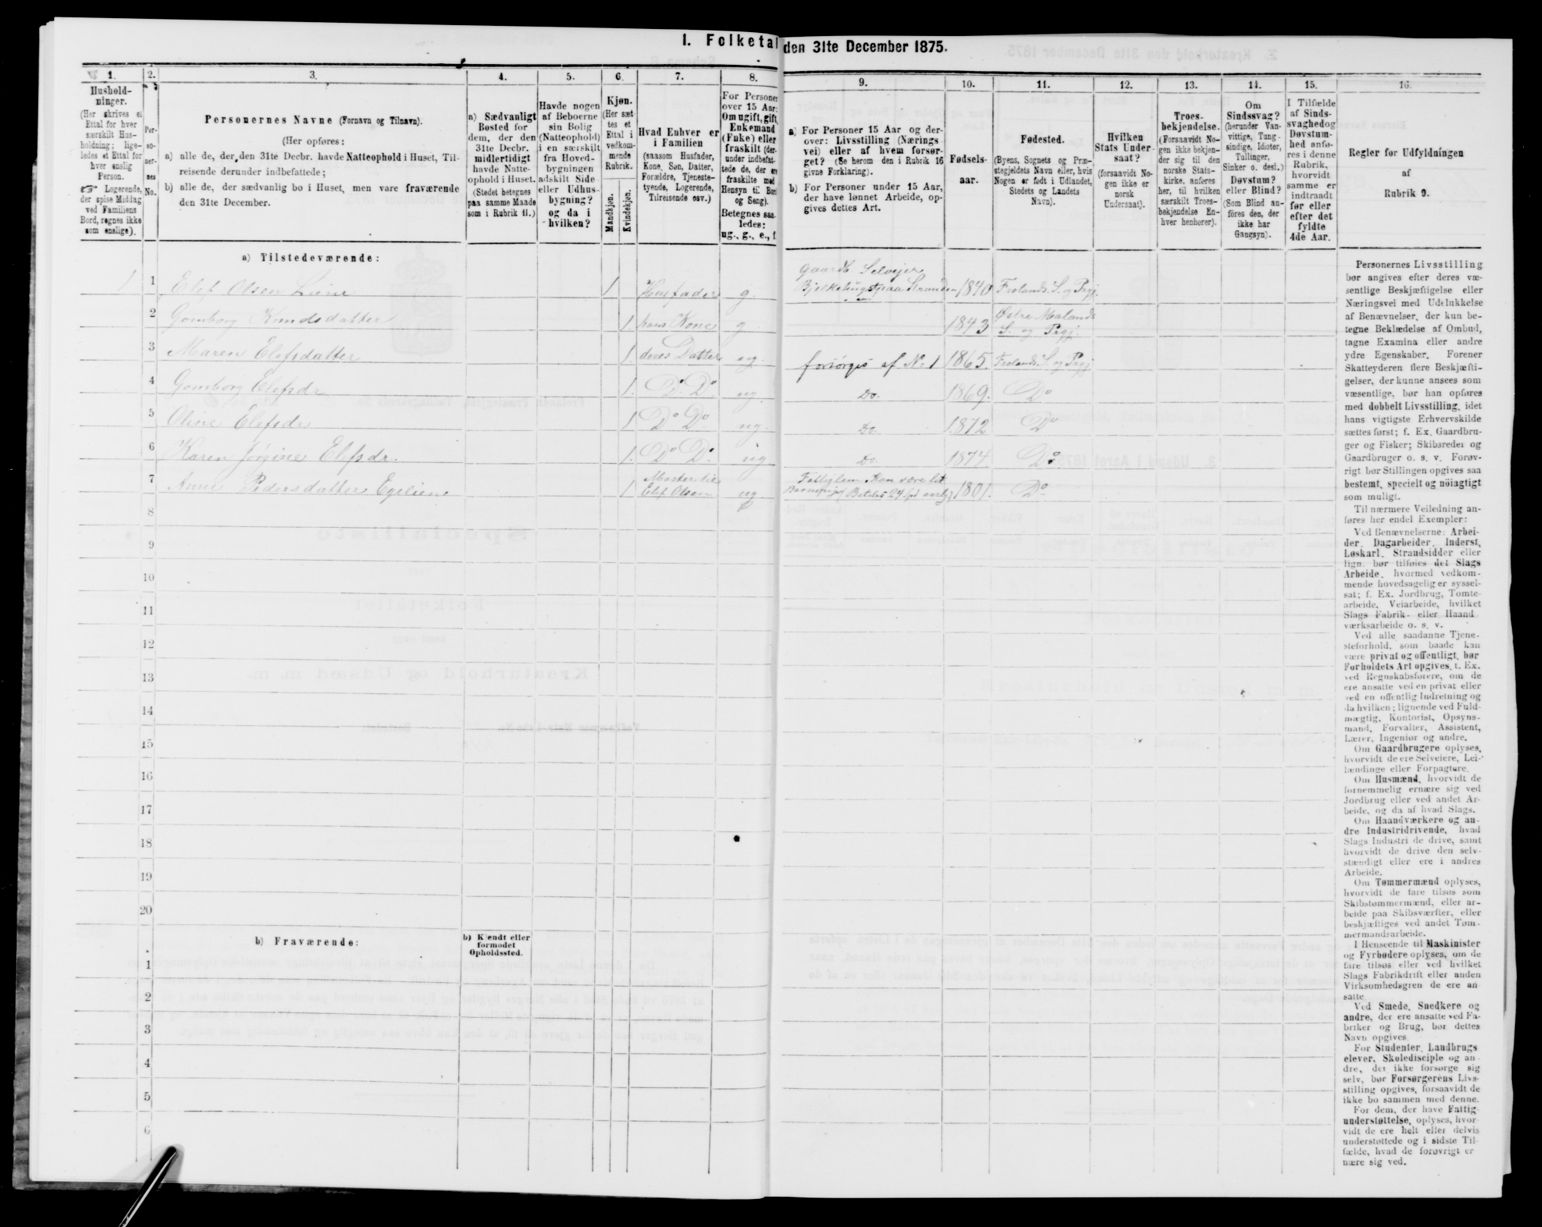 1. Folketal den 31te December 1875.
1.
2.
3.
4.
5.
6.
7.
8.
9.
10.
11.
12.
13.
14.
15.
16.
Hushold-
ninger.
(Her skrives et
Ettal for hver
særskilt Hus-
holdning; lige-
ledes et Ettal for
hver enslig
Person.
Logerende,
der spise Middag
ved Familiens
Bord, regnes ikke
som enslige).
Per-
so-
ner-
nes
No.
Personernes Navne (Fornavn og Tilnavn).
(Her opføres:
a) alle de, der den 31te Decbr. havde Natteophold i Huset, Til-
reisende derunder indbefattede;
b) alle de, der sædvanlig bo i Huset, men vare fraværende
den 31te December.
a) Sædvanligt
Bosted for
dem, der den
31te Decbr.
midlertidigt
havde Natte-
ophold i Huset.
(Stedet betegnes
paa samme Maade
som i Rubrik 11.)
Havde nogen
af Beboerne
sin Bolig
(Natteophold)
i en særskilt
fra Hoved-
bygningen
adskilt Side-
eller Udhus-
bygning?
og da i
hvilken?
Kjøn.
(Her sæt-
tes et
Ettal i
vedkom-
mende
Rubrik.
Mandkjøn.
Kvindekjøn.
Hvad Enhver er
i Familien
(saasom Husfader,
Kone, Søn, Datter,
Forældre, Tjeneste-
tyende, Logerende,
Tilreisende osv.)
For Personer
over 15 Aar:
Om ugift, gift,
Enkemand
(Fuke) eller
fraskilt (der-
under indbefat-
tede de, der ere
fraskilte med
Hensyn til Bord
og Seng).
Betegnes saa-
ledes:
ug., g., e., f.
a) For Personer 15 Aar og der-
over: Livsstilling (Nærings-
vei) eller af hvem forsør-
get? (Se herom den i Rubrik 16
givne Forklaring).
b) For Personer under 15 Aar,
der have lønnet Arbeide, op-
gives dettes Art.
Fødsels-
aar.
Fødested.
(Byens, Sognets og Præ-
stegjeldets Navn eller, hvis
Nogen er født i Udlandet,
Stedets og Landets
Navn).
Hvilken
Stats Under-
saat?
(forsaavidt No-
gen ikke er
norsk
Undersaat).
Troes-
bekjendelse.
(Forsaavidt No-
gen ikke bekjen-
der sig til den
norske Stats-
kirke, anføres
her, til hvilken
særskilt Troes-
bekjendelse En-
hver henhører).
Om
Sindssvag?
(herunder Van-
vittige, Tung-
sindige, Idioter,
Tullinger,
Sinker o. desl.)
Døvstum?
eller Blind?
(Som Blind an-
føres den, der
ikke har
Gangsyn).
I Tilfælde
af Sinds-
svaghed og
Døvstum-
hed anfø-
res i denne
Rubrik,
hvorvidt
samme er
indtraadt
før eller
efter det
fyldte
4de Aar.
Regler for Udfyldningen
af
Rubrik 9.
a) Tilstedeværende:
1 1 Elef Olsen 1 Husfader g. Gaardb. Selveier 1840 Frolands S. og Pgj.
2 Gomborg Knudsdatter 1 hans Kone g. 1843 Østre Molands S. og Pgj.
3 Maren Elefsdatter 1 deres Datter ug. forsørges af No 1 1865. Frolands S. og Pgj
4 Gomborg Elefsdr 1. Do Do ug. Do. 1869. Do
5 Oline Elefsdr 1 Do Do ug. Do. 1872 Do
6 Karen Elefsdr. 1. Do Do. ug Do. 1874. Do
7 Anne Pedersdatter 1 Elef Olsen ug 1801. Do
8
9
10
11
12
13
14
15
16
17
18
19
20
b) Fraværende:
b) Kjendt eller
formodet
Opholdssted.
1
2
3
4
5
6
Personernes Livsstilling
bør angives efter deres væ-
sentlige Beskjæftigelse eller
Næringsvei med Udelukkelse
af Benævnelser, der kun be-
tegne Beklædelse af Ombud,
tagne Examina eller andre
ydre Egenskaber. Forener
Skatteyderen flere Beskjæfti-
gelser, der kunne ansees som
væsentlige, bør han opføres
med dobbelt Livsstilling, idet
hans vigtigste Erhvervskilde
sættes først; f. Ex. Gaardbru-
ger og Fisker; Skibsreder og
Gaardbruger o. s. v. Forøv-
rigt bør Stillingen opgives saa
bestemt, specielt og nøiagtigt
som muligt.
Til nærmere Veiledning an-
føres her endel Exempler:
Ved Benævnelserne: Arbei-
der, Dagarbeider, Inderst,
Løskarl, Strandsidder eller
lign. bør tilføies det Slags
Arbeide, hvormed vedkom-
mende hovedsagelig er syssel-
sat; f. Ex. Jordbrug, Tomte-
arbeide, Veiarbeide, hvilket
Slags Fabrik- eller Haand-
værksarbeide o. s. v.
Ved alle saadanne Tjene-
steforhold, som baade kan
være privat og offentligt, bør
Forholdets Art opgives, t. Ex.
ved Regnskabsførere, om de
ere ansatte ved en privat eller
ved en offentlig Indretning og
da hvilken; lignende ved Fuld-
mægtig, Kontorist, Opsyns-
mand, Forvalter, Assistent,
Lærer, Ingeniør og andre.
Om Gaardbrugere oplyses,
hvorvidt de ere Selveiere, Lei-
lændinge eller Forpagtere.
Om Husmænd, hvorvidt de
fornemmelig ernære sig ved
Jordbrug eller ved andet Ar-
beide, og da af hvad Slags.
Om Haandværkere og an-
dre Industridrivende, hvad
Slags Industri de drive, samt
hvorvidt de drive den selv-
stændigt eller ere i andres
Arbeide.
Om Tømmermænd oplyses,
hvorvidt de fare tilsøs som
Skibstømmermænd, eller ar-
beide paa Skibsværfter, eller
beskjæftiges ved andet Tøm-
mermandsarbeide.
I Henseende til Maskinister
og Fyrbødere oplyses, om de
fare tilsøs eller ved hvilket
Slags Fabrikdrift eller anden
Virksomhedsgren de ere an-
satte.
Ved Smede, Snedkere og
andre, der ere ansatte ved Fa-
briker og Brug, bør dettes
Navn opgives.
For Studenter, Landbrugs-
elever, Skoledisciple og an-
dre, der ikke forsørge sig
selv, bør Forsørgerens Livs-
stilling opgives, forsaavidt de
ikke bo sammen med denne.
For dem, der have Fattig-
understøttelse, oplyses, hvor-
vidt de ere helt eller delvis
understøttede og i sidste Til-
fælde, hvad de forøvrigt er-
nære sig ved.